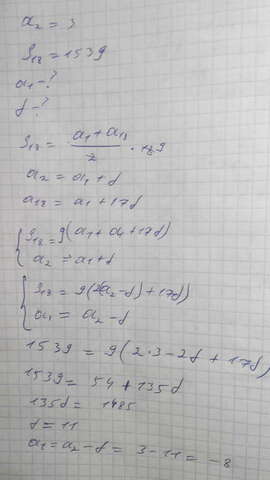 a₂ = 3
S₁₈ = 1539
a₁ - ?
d - ?
S₁₈ = (a₁ + a₁₈)/2 · 18 9
a₂ = a₁ + d
a₁₈ = a₁ + 17d
{ S₁₈ = 9(a₁ + a₁ + 17d)
a₂ = a₁ + d
{ S₁₈ = 9(2(a₂ - d) + 17d)
a₁ = a₂ - d
1539 = 9(2·3 - 2d + 17d)
1539 = 54 + 135d
135d = 1485
d = 11
a₁ = a₂ - d = 3 - 11 = -8